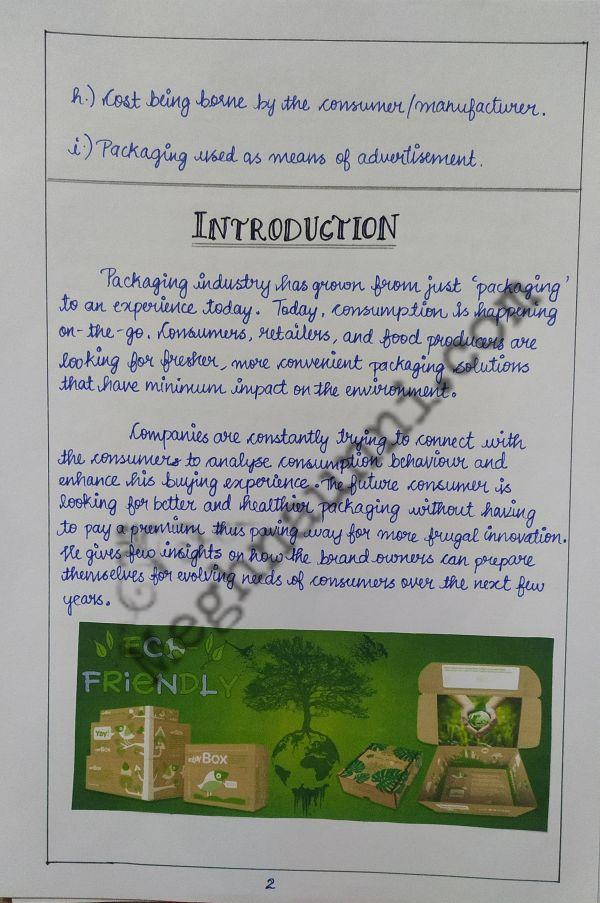 h.) Cost being borne by the consumer/manufacturer.
i.) Packaging used as means of advertisement.
INTRODUCTION
Packaging industry has grown from just 'packaging'
to an experience today. Today, consumption is happening
on-the-go. Consumers, retailers, and food producers are
looking for fresher, more convenient packaging solutions
that have minimum impact on the environment.
Companies are constantly trying to connect with
the consumers to analyse consumption behaviour and
enhance his buying experience. The future consumer is
looking for better and healthier packaging without having
to pay a premium thus paving way for more frugal innovation.
He gives few insights on how the brand owners can prepare
themselves for evolving needs of consumers over the next few
years.
ECO
FRiENDLY
Yay!
BOX
2